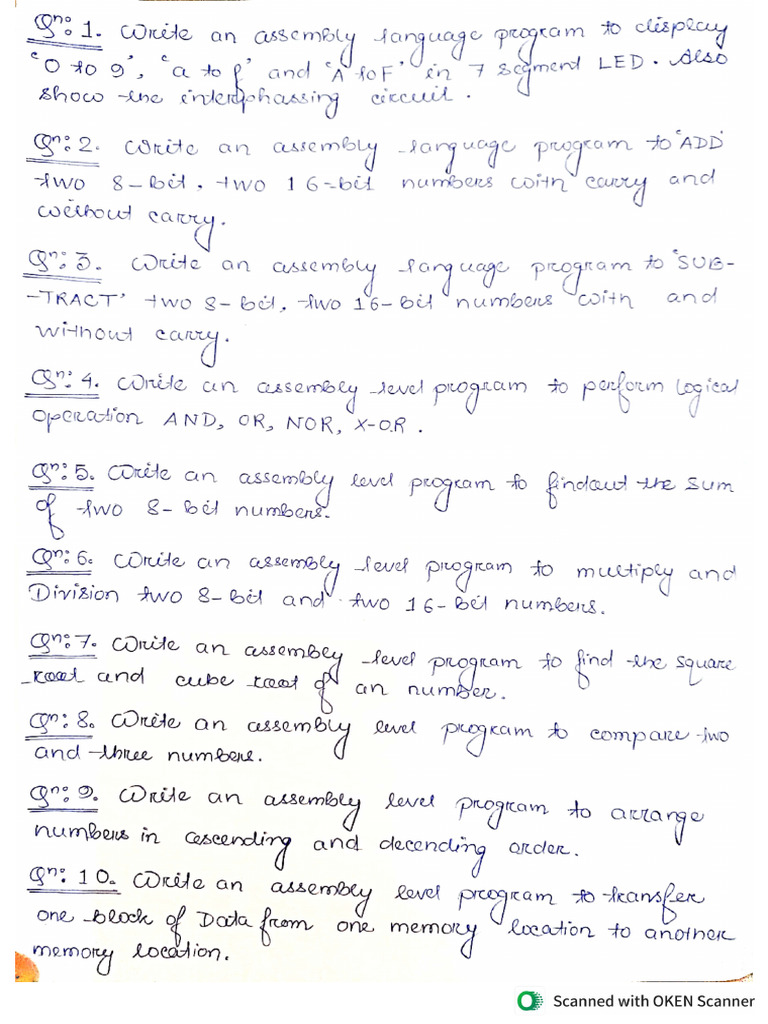 Qn: 1. Write an assembly language program to display
'0 to 9', 'a to f' and 'A to F' in 7 segment LED. Also
show the interphassing circuit.
Qn: 2. Write an assembly language program to 'ADD'
two 8-bit, two 16-bit numbers with carry and
without carry.
Qn: 3. Write an assembly language program to 'SUB-
-TRACT' two 8-bit, two 16-bit numbers with and
without carry.
Qn: 4. Write an assembly level program to perform logical
operation AND, OR, NOR, X-OR.
Qn: 5. Write an assembly level program to findout the sum
of two 8-bit numbers.
Qn: 6. Write an assembly level program to multiply and
Division two 8-bit and two 16-bit numbers.
Qn: 7. Write an assembly level program to find the square
root and cube root of an number.
Qn: 8. Write an assembly level program to compare two
and three numbers.
Qn: 9. Write an assembly level program to arrange
numbers in ascending and decending order.
Qn: 10. Write an assembly level program to transfer
one block of Data from one memory location to another
memory location.
Scanned with OKEN Scanner